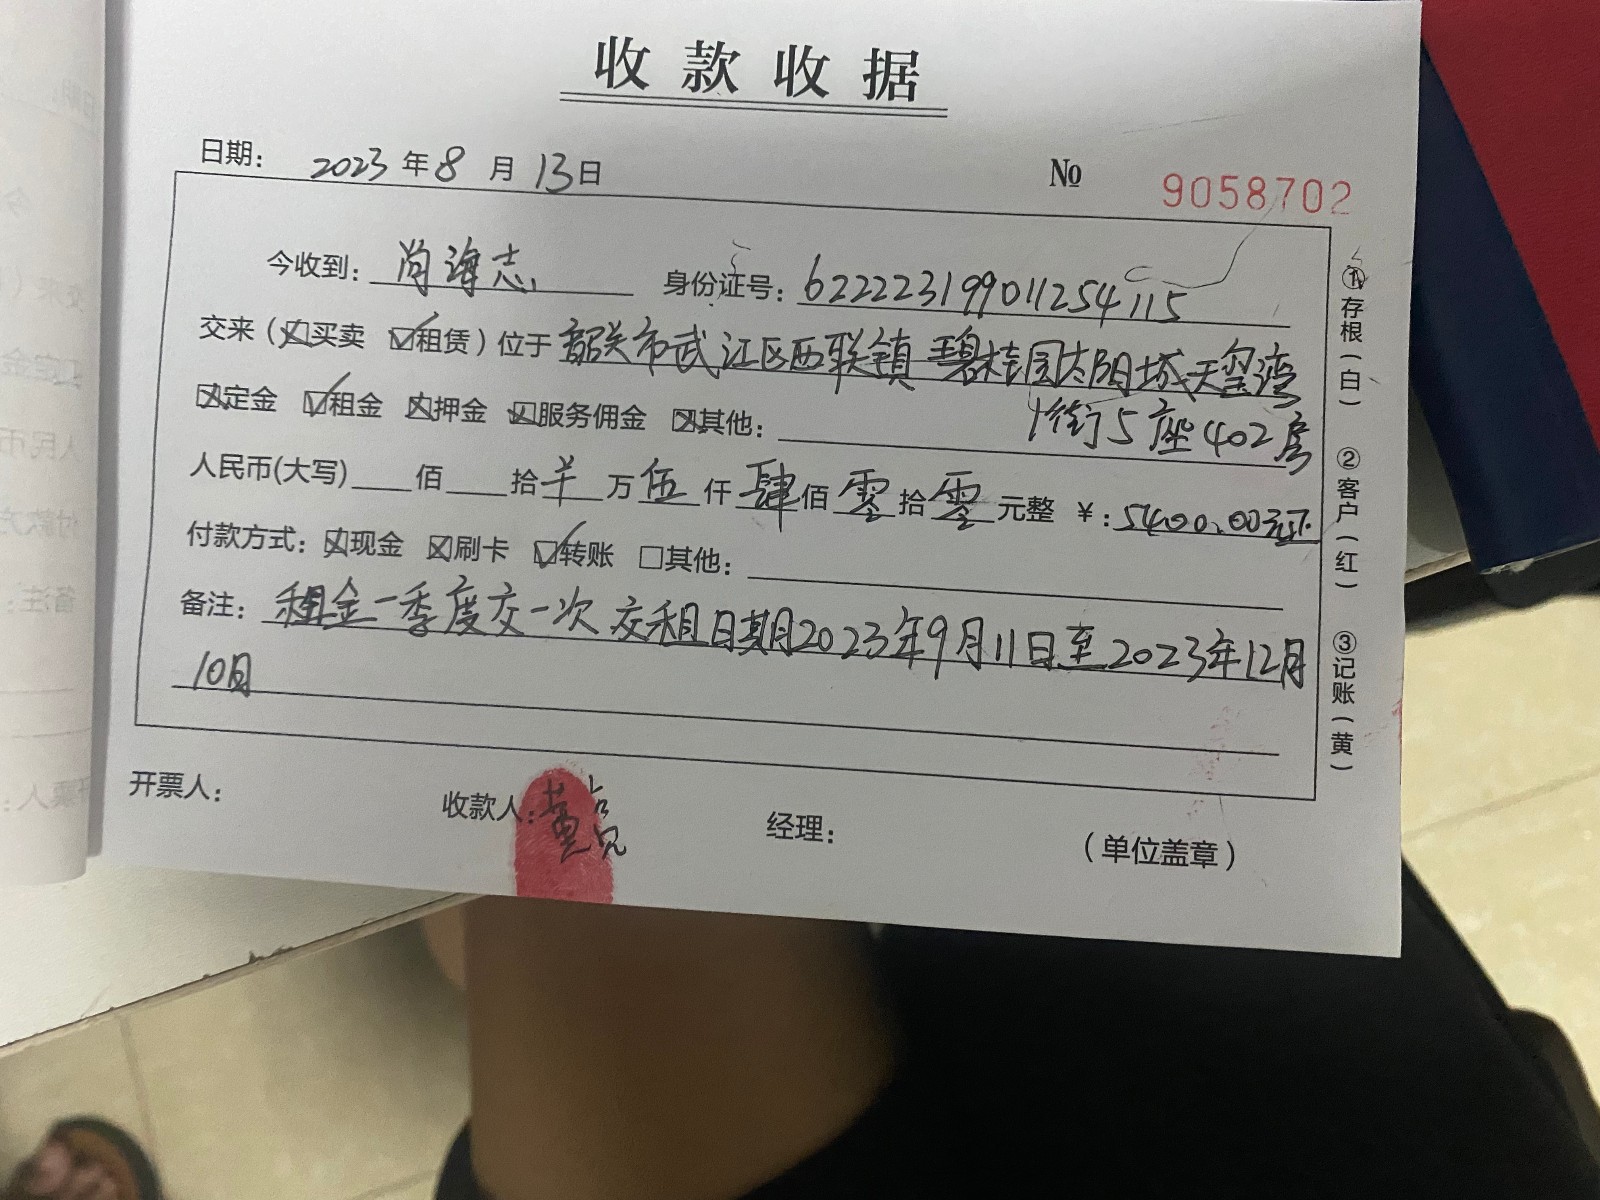 收款收据
日期: 2023年8月13日 № 9058702
今收到: 尚海志 身份证号: 622223199011254115
交来(☒买卖 ☑租赁)位于 韶关市武江区西联镇碧桂园太阳城天玺湾
1街5座402房
☒定金 ☑租金 ☒押金 ☒服务佣金 ☒其他:
人民币(大写) 佰 拾 羊 万 伍 仟 肆 佰 零 拾 零 元整 ¥: 5400.00元正
付款方式: ☒现金 ☒刷卡 ☑转账 □其他:
备注: 租金一季度交一次 交租日期2023年9月11日至2023年12月
10日
开票人: 收款人: 黄 经理: (单位盖章)
①存根(白) ②客户(红) ③记账(黄)